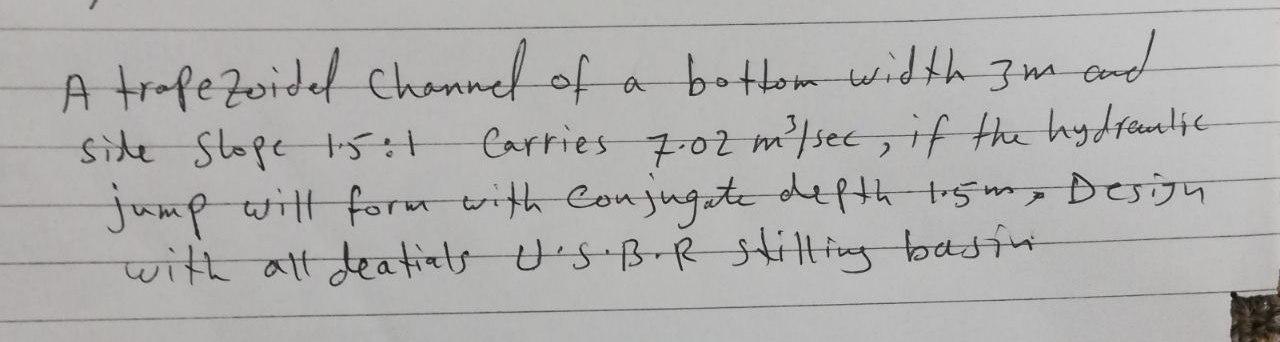 A trapezoidel channel of a bottom width 3m and
side slope 1.5:1 Carries 7.02 m³/sec, if the hydraulic
jump will form with Conjugate depth 1.5m, Design
with all deatials U.S.B.R stilling basin